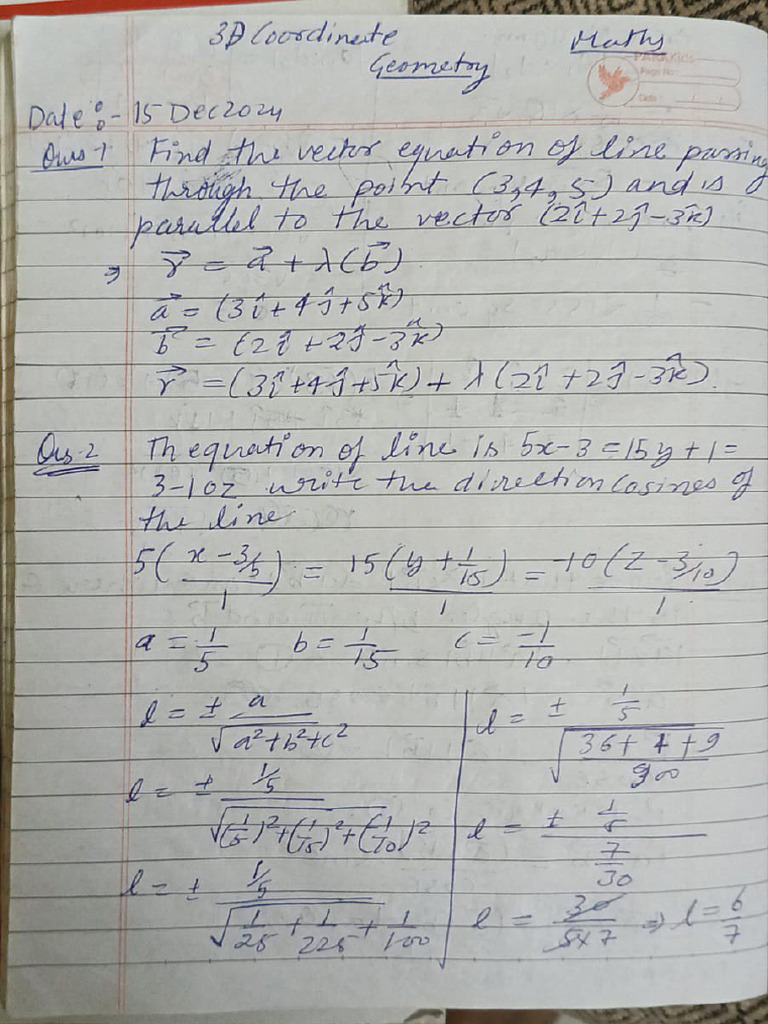 3D Coordinate Geometry
Maths
PARAKIDS
Page No:
Date:
Date :- 15 Dec 2024
Ques-1 Find the vector equation of line passing
through the point (3,4,5) and is
parallel to the vector (2î+2ĵ-3k̂)
⇒ r⃗ = a⃗ + λ(b⃗)
a⃗ = (3î+4ĵ+5k̂)
b⃗ = (2î+2ĵ-3k̂)
r⃗ = (3î+4ĵ+5k̂) + λ(2î+2ĵ-3k̂).
Ques-2 Th equation of line is 5x-3 = 15y+1 =
3-10z write the direction cosines of
the line
5(x-3/5)/1 = 15(y+1/15)/1 = -10(z-3/10)/1
a = 1/5 b = 1/15 c = -1/10
l = ± a/√(a²+b²+c²)
l = ± (1/5)/√((1/5)²+(1/15)²+(1/10)²
l = ± (1/5)/√(1/25 + 1/225 + 1/100)
l = ± (1/5)/√((36+4+9)/900)
l = ± (1/5)/(7/30)
l = 30/(5×7) ⇒ l = 6/7